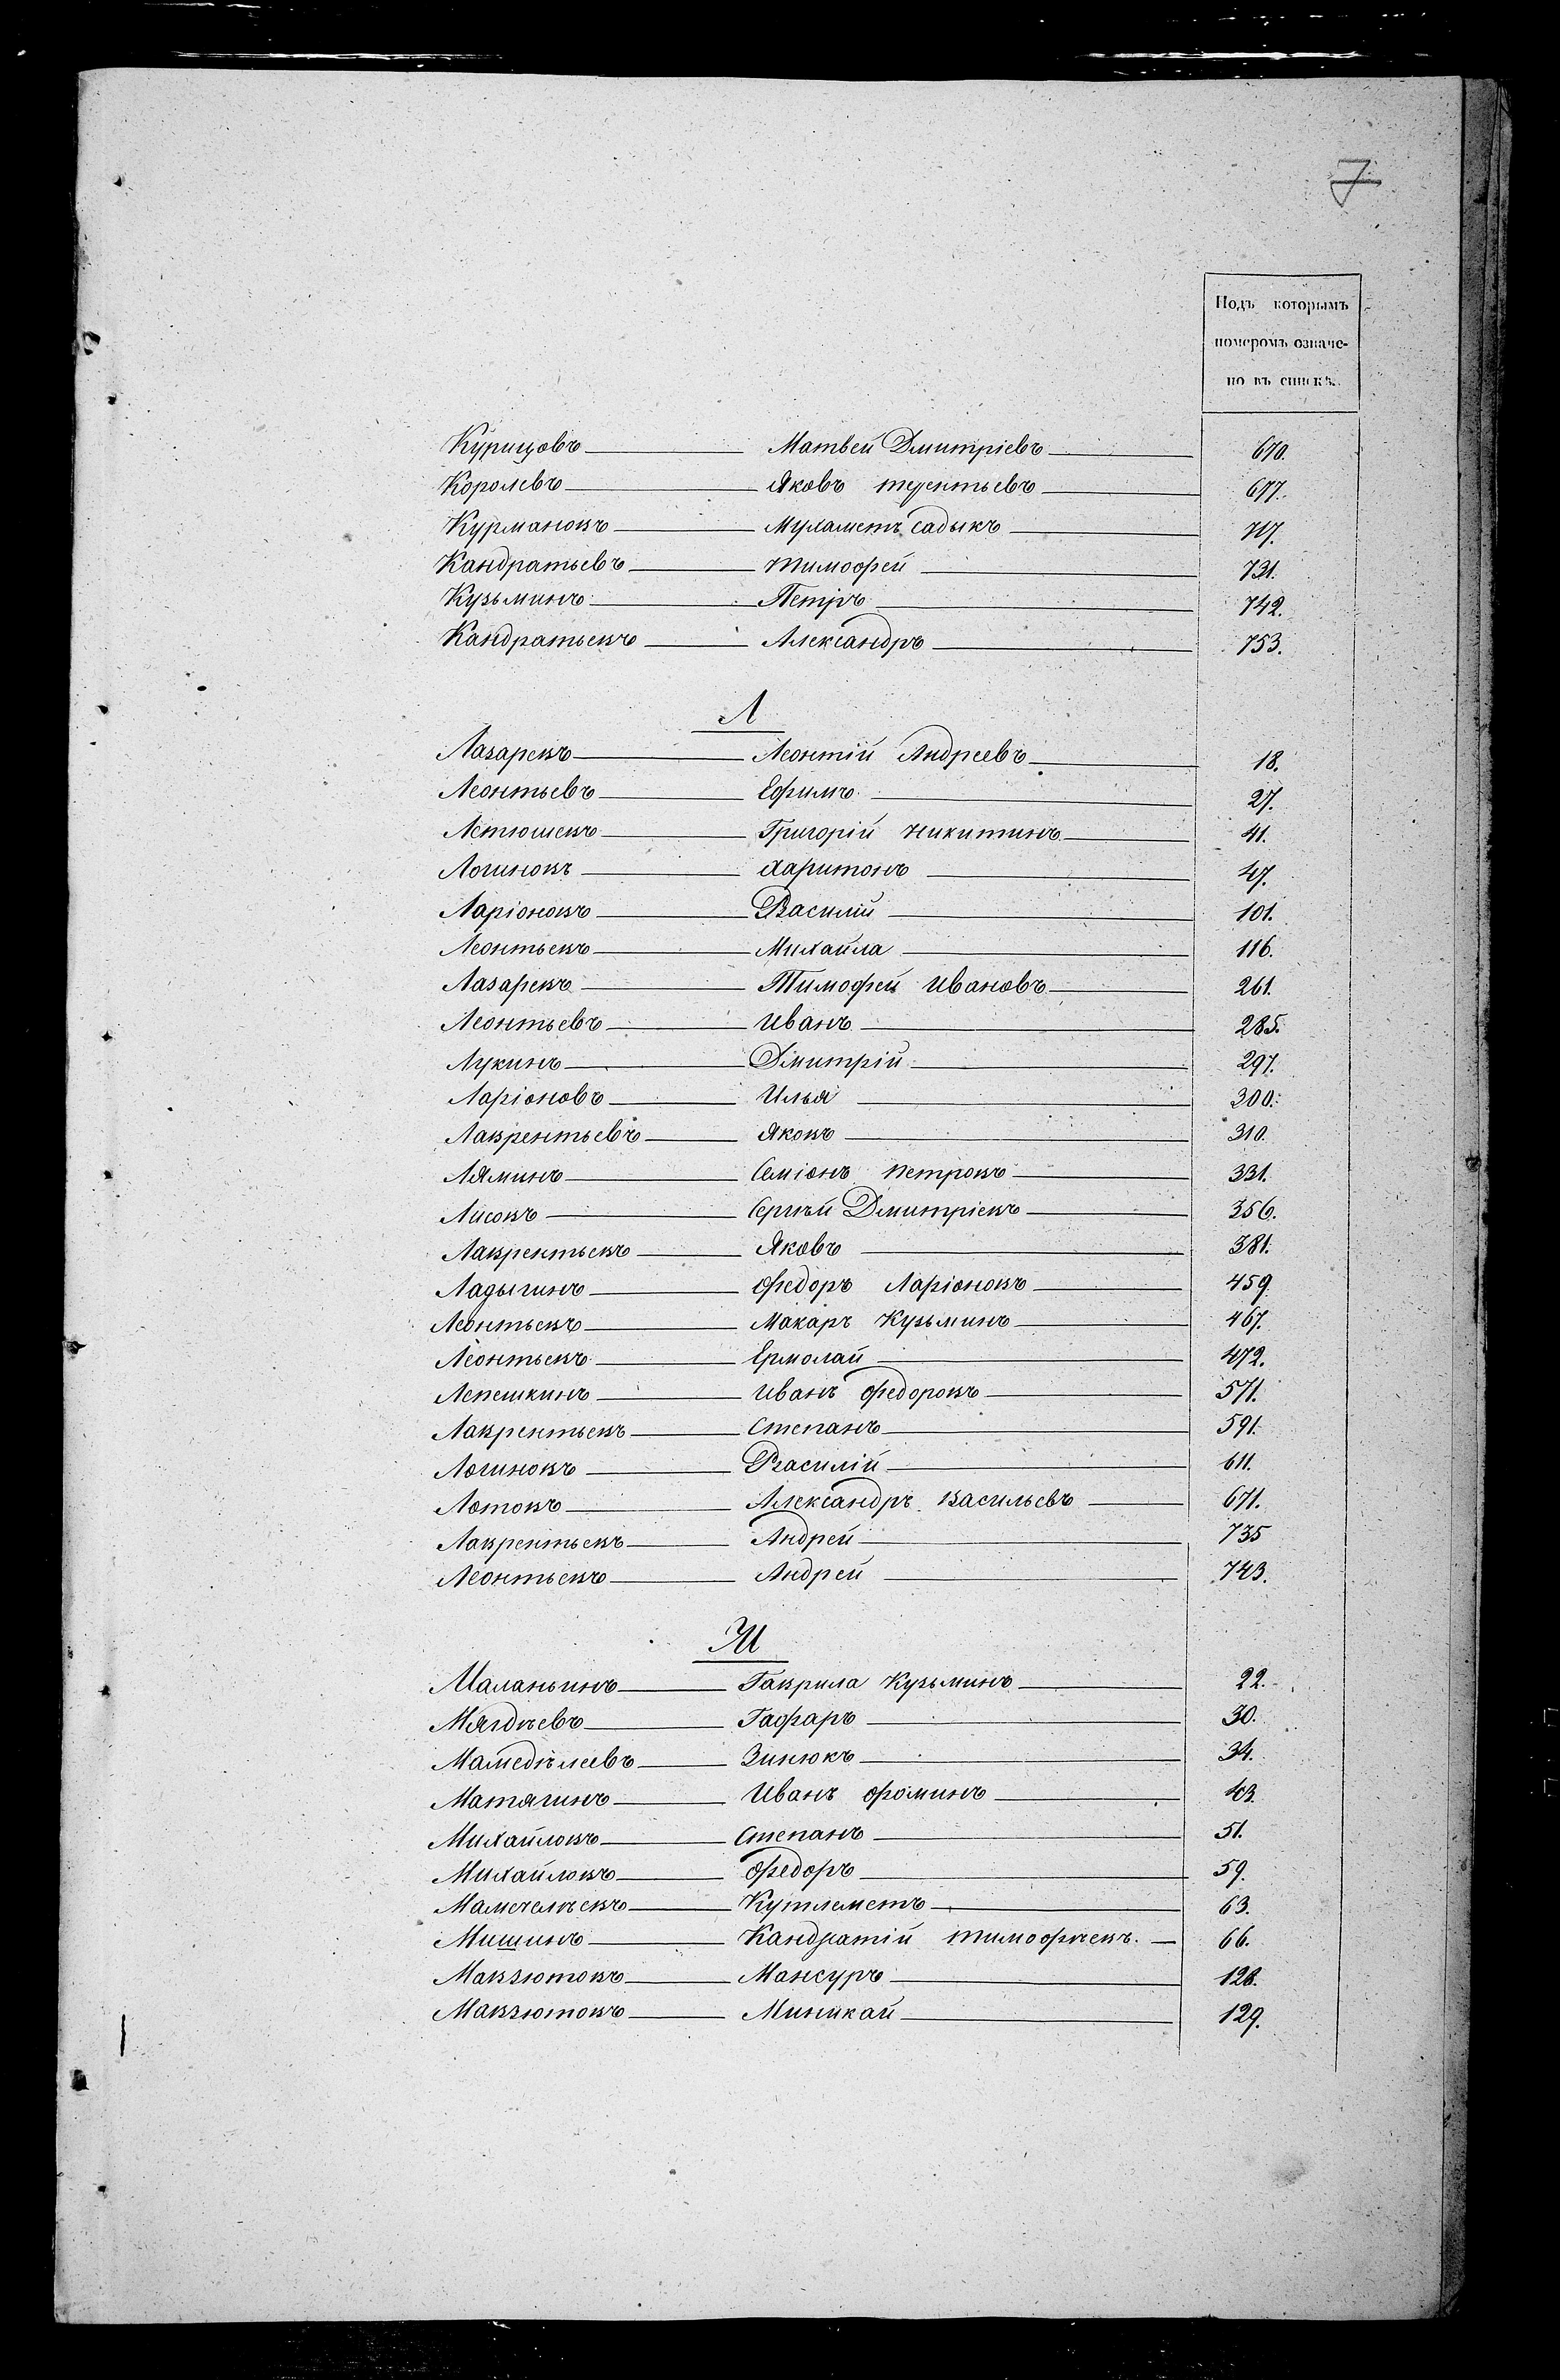 7
Подъ которымъ
номеромъ означе-
но въ спискѣ.
Курицовъ Матвей Дмитріевъ 670.
Королевъ Яковъ терентьевъ 677.
Курмановъ Мухаметъ садыкъ 717.
Кандратьевъ тимофей 731.
Кузьминъ Петръ 742.
Кандратьевъ Александръ 753.
Л
Лазаревъ Леонтій Андреевъ 18.
Леонтьевъ Ефимъ 27.
Летюшевъ Григорій никитинъ 41.
Логиновъ Харитонъ 47.
Ларіоновъ Василій 101.
Леонтьевъ Михайла 116.
Лазаревъ Тимофей Ивановъ 261.
Леонтьевъ Иванъ 285.
Лукинъ Дмитрій 297.
Ларіоновъ Илья 300.
Лаврентьевъ Яковъ 310.
Ляминъ Семіонъ петровъ 331.
Лисовъ Сергѣй Дмитріевъ 356.
Лаврентьевъ Яковъ 381.
Ладыгинъ Федоръ Ларіоновъ 459
Леонтьевъ Макаръ Кузьминъ 467.
Леонтьевъ Ермолай 472.
Лепешкинъ Иванъ Федоровъ 571.
Лаврентьевъ Степанъ 591.
Логиновъ Василій 611.
Лотовъ Александръ Васильевъ 671.
Лаврентьевъ Андрей 735
Леонтьевъ Андрей 743.
М
Маланьинъ Гаврила Кузьминъ 22.
Мягдѣевъ Гафаръ 30.
Мамедѣлеевъ Зинюкъ 34.
Матягинъ Иванъ фоминъ 43.
Михайловъ Степанъ 51.
Михайловъ Федоръ 59.
Мамечелѣевъ Кутлеметъ 63.
Мишинъ Кандратій тимофѣевъ 66.
Мавзютовъ Мансуръ 128.
Мавзютовъ Миникай 129.